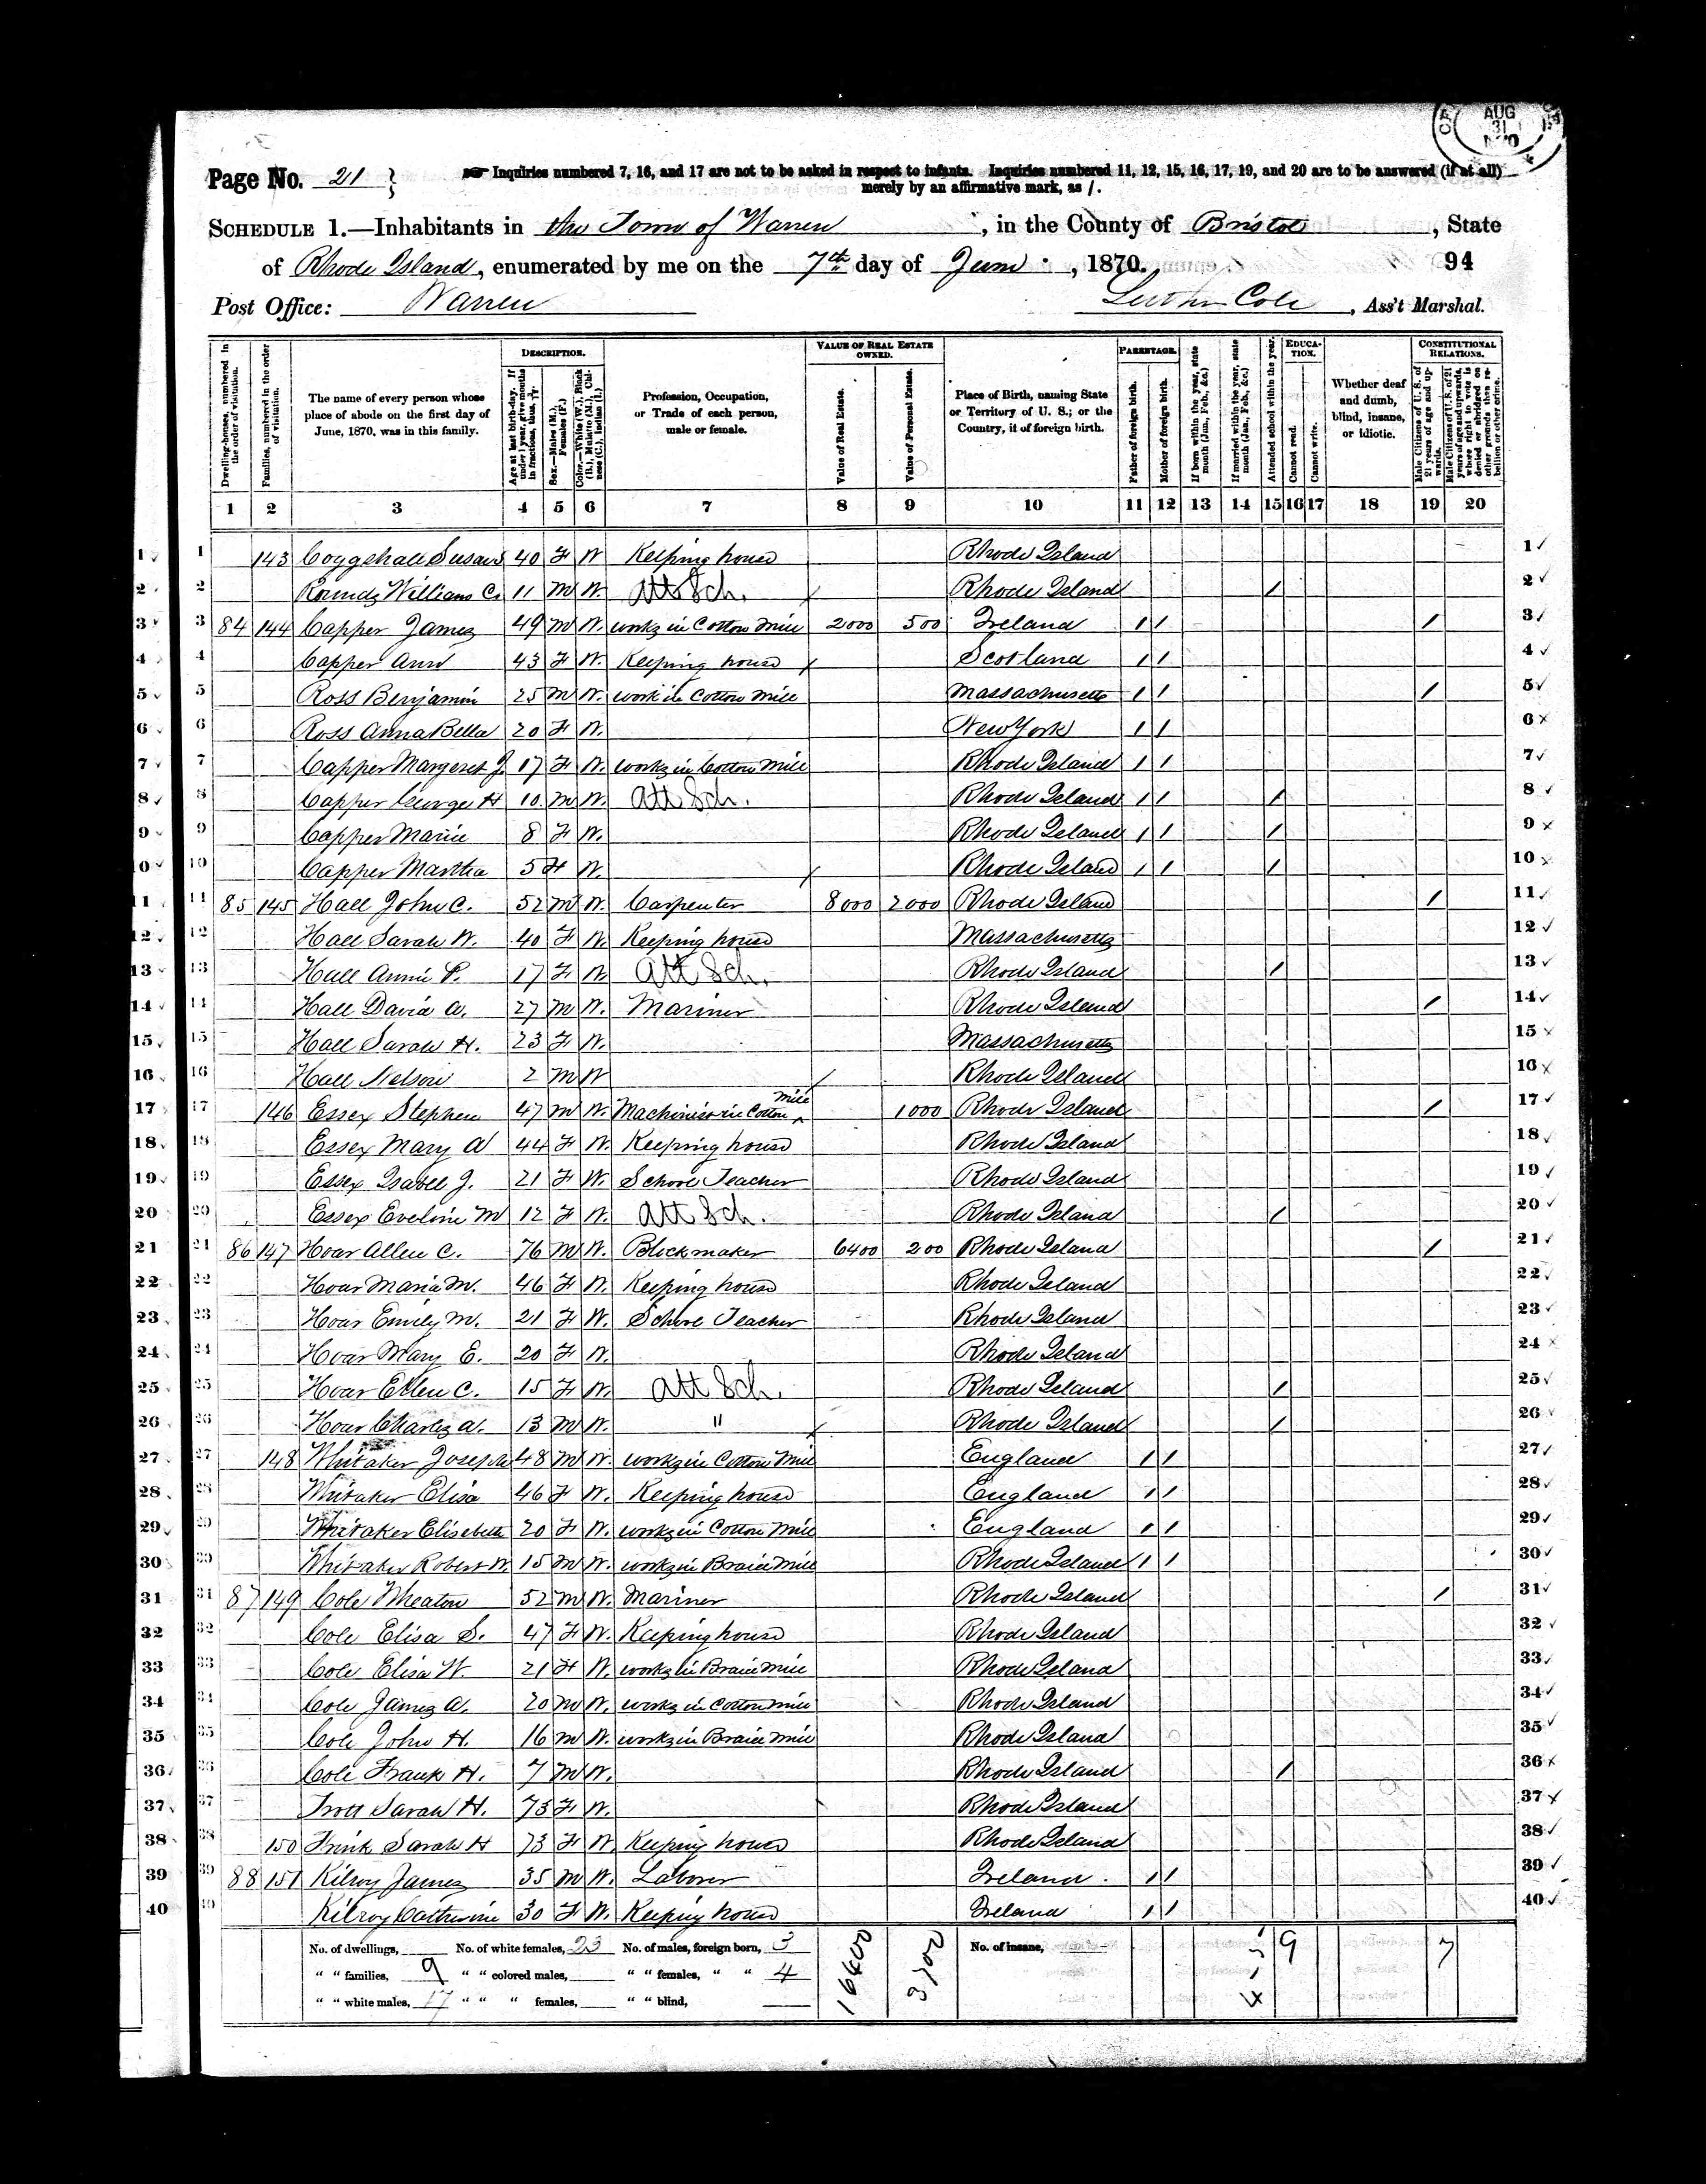 AUG
31
Page No. 21 }
☞ Inquiries numbered 7, 16, and 17 are not to be asked in respect to infants. Inquiries numbered 11, 12, 15, 16, 17, 19, and 20 are to be answered (if at all)
merely by an affirmative mark, as /.
SCHEDULE 1.—Inhabitants in the Town of Warren, in the County of Bristol, State
of Rhode Island, enumerated by me on the 7th day of June, 1870. 94
Post Office: Warren Luther Cole, Ass't Marshal.
Dwelling-houses, numbered in the order of visitation.
Families, numbered in the order of visitation.
The name of every person whose place of abode on the first day of June, 1870, was in this family.
DESCRIPTION.
Age at last birth-day. If under 1 year, give months in fractions, thus,
Sex.—Males (M.), Females (F.)
Color.—White (W.), Black (B.), Mulatto (M.), Chinese (C.), Indian (I.)
Profession, Occupation, or Trade of each person, male or female.
VALUE OF REAL ESTATE OWNED.
Value of Real Estate.
Value of Personal Estate.
Place of Birth, naming State or Territory of U. S.; or the Country, if of foreign birth.
PARENTAGE.
Father of foreign birth.
Mother of foreign birth.
If born within the year, state month (Jan., Feb., &c.)
If married within the year, state month (Jan., Feb., &c.)
Attended school within the year.
EDUCATION.
Cannot read.
Cannot write.
Whether deaf and dumb, blind, insane, or idiotic.
CONSTITUTIONAL RELATIONS.
Male Citizens of U. S. of 21 years of age and upwards.
Male Citizens of U. S. of 21 years of age and upwards, whose right to vote is denied or abridged on other grounds than rebellion or other crime.
1 2 3 4 5 6 7 8 9 10 11 12 13 14 15 16 17 18 19 20
1 1 143 Coggshall Susan 40 F W Keeping house Rhode Island 1
2 2 Rounds William C. 11 M W. Att Sch. Rhode Island / 2
3 3 84 144 Capper James 49 M W. works in Cotton Mill 2000 500 Ireland / / / 3
4 4 Capper Ann 43 F W. Keeping house Scotland / / 4
5 5 Ross Benjamin 25 M W. work in Cotton Mill Massachusetts / / / 5
6 6 Ross Anna Bella 20 F W. New York / / 6
7 7 Capper Margeret J. 17 F W. works in Cotton Mill Rhode Island / / 7
8 8 Capper George H 10 M W. Att Sch. Rhode Island / / / 8
9 9 Capper Marie 8 F W. Rhode Island / / / 9
10 10 Capper Martha 5 F W. Rhode Island / / / 10
11 11 85 145 Hall John C. 52 M W. Carpenter 8000 2000 Rhode Island / 11
12 12 Hall Sarah W. 40 F W. Keeping house Massachusetts 12
13 13 Hall Annie P. 17 F W. Att Sch. Rhode Island / 13
14 14 Hall David A. 27 M W. Mariner Rhode Island / 14
15 15 Hall Sarah H. 23 F W. Massachusetts 15
16 16 Hall Nelson 2 M W Rhode Island 16
17 17 146 Essex Stephen 47 M W. Machinist in Cotton Mill 1000 Rhode Island / 17
18 18 Essex Mary A 44 F W. Keeping house Rhode Island 18
19 19 Essex Isabell J. 21 F W. School Teacher Rhode Island 19
20 20 Essex Eveline M 12 F W. Att Sch. Rhode Island / 20
21 21 86 147 Hoar Allen C. 76 M W. Blockmaker 6400 200 Rhode Island / 21
22 22 Hoar Maria M. 46 F W. Keeping house Rhode Island 22
23 23 Hoar Emily M. 21 F W. School Teacher Rhode Island 23
24 24 Hoar Mary E. 20 F W. Rhode Island 24
25 25 Hoar Ellen C. 15 F W. Att Sch. Rhode Island / 25
26 26 Hoar Charles A. 13 M W. " Rhode Island / 26
27 27 148 Whitaker Joseph 48 M W. works in Cotton Mill England / / 27
28 28 Whitaker Elisa 46 F W. Keeping house England / / 28
29 29 Whitaker Elisebeth 20 F W. works in Cotton Mill England / / 29
30 30 Whitaker Robert W. 15 M W. works in Braid Mill Rhode Island / / 30
31 31 87 149 Cole Wheaton 52 M W. Mariner Rhode Island / 31
32 32 Cole Elisa S. 47 F W. Keeping house Rhode Island 32
33 33 Cole Elisa W. 21 F W. works in Braid Mill Rhode Island 33
34 34 Cole James A. 20 M W. works in Cotton Mill Rhode Island 34
35 35 Cole John H. 16 M W. works in Braid Mill Rhode Island 35
36 36 Cole Frank H. 7 M W. Rhode Island / 36
37 37 Trott Sarah H. 73 F W. Rhode Island 37
38 38 150 Frink Sarah H 73 F W. Keeping house Rhode Island 38
39 39 88 151 Kilroy James 35 M W. Laborer Ireland / / 39
40 40 Kilroy Catherine 30 F W. Keeping house Ireland / / 40
No. of dwellings, No. of white females, 23 No. of males, foreign born, 3 16400 3700 No. of insane, 9 7
" " families, 9 " " colored males, " " females, " " 4
" " white males, 17 " " " females, " " blind,